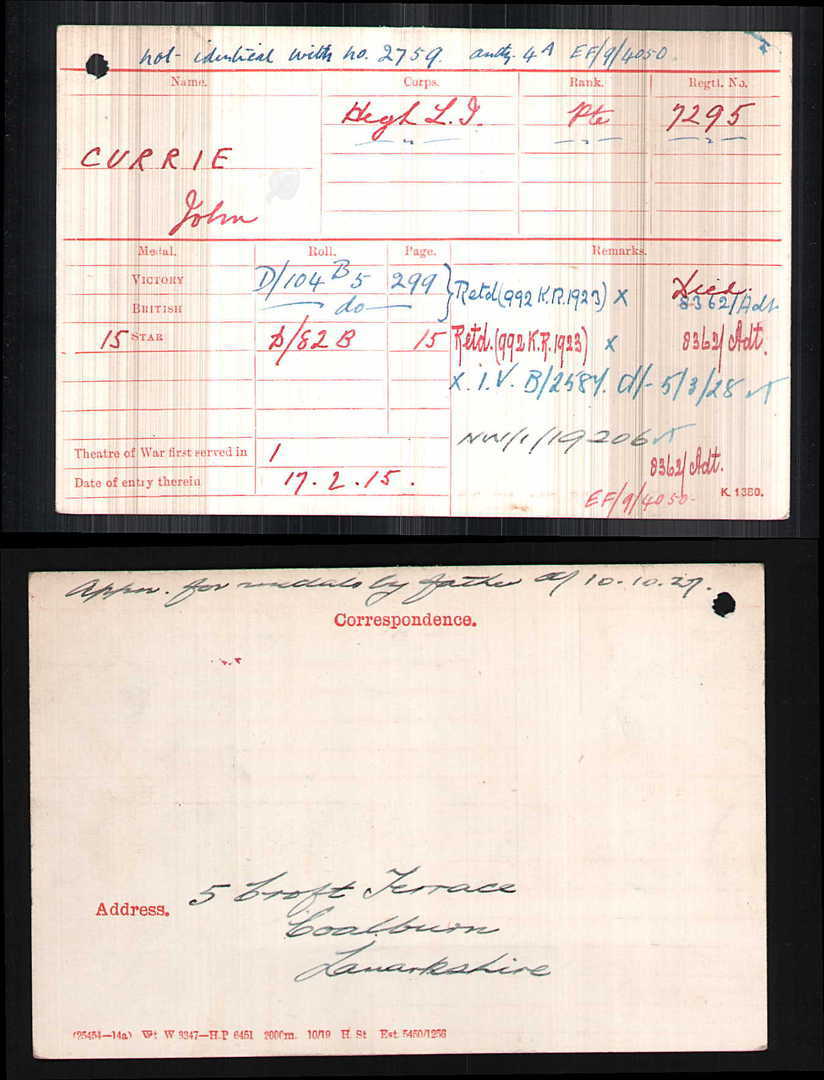 not identical with no. 2759. authy. 4A EF/9/4050.
Name. Corps. Rank. Regtl. No.
High L.I. Pte 7295
CURRIE
John
Medal. Roll. Page. Remarks.
VICTORY D/104 B5 299 Retd (992 K.R. 1923) X Died.
BRITISH do 8362/Adt
15 STAR D/82 B 15 Retd. (992 K.R. 1923) X 8362/Adt.
X. I.V. B/2587. d/- 5/3/28
NW/1/19206
Theatre of War first served in 1 8362/Adt.
Date of entry therein 17.2.15. EF/9/4050. K. 1380.
Appn. for medals by father d/ 10.10.27.
Correspondence.
Address. 5 Croft Terrace
Coalburn
Lanarkshire
(25454—14a) Wt W 3347—H.P 6451 2000m. 10/19 H. St Est. 5450/1256